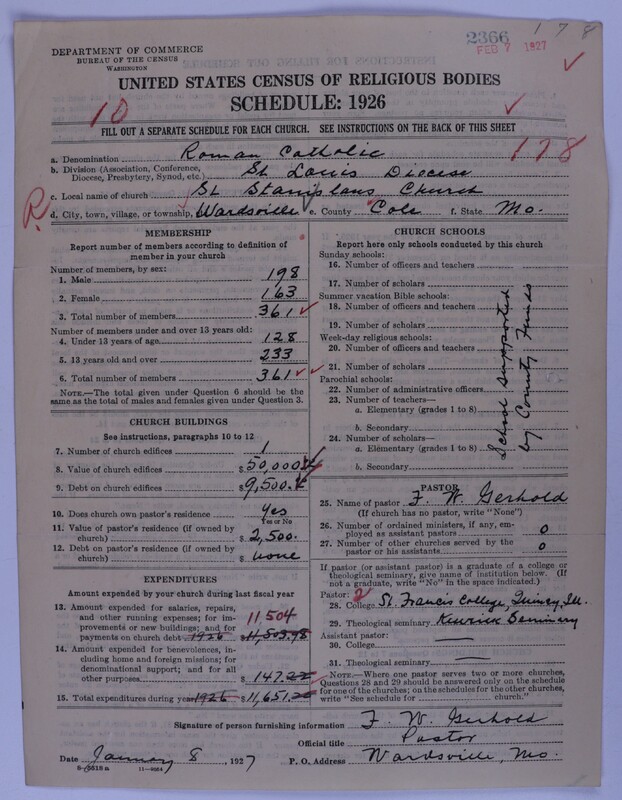 178
2366
FEB 7 1927
DEPARTMENT OF COMMERCE
BUREAU OF THE CENSUS
WASHINGTON
UNITED STATES CENSUS OF RELIGIOUS BODIES
SCHEDULE: 1926
10
FILL OUT A SEPARATE SCHEDULE FOR EACH CHURCH. SEE INSTRUCTIONS ON THE BACK OF THIS SHEET
178
a. Denomination Roman Catholic
b. Division (Association, Conference, Diocese, Presbytery, Synod, etc.) St Louis Diocese
c. Local name of church St Stanislaus Church
R.
d. City, town, village, or township, Wardsville e. County Cole f. State Mo.
MEMBERSHIP
Report number of members according to definition of
member in your church
Number of members, by sex:
1. Male 198
2. Female 163
3. Total number of members 361
Number of members under and over 13 years old:
4. Under 13 years of age 128
5. 13 years old and over 233
6. Total number of members 361
NOTE.—The total given under Question 6 should be
same as the total of males and females given under Question 3.
CHURCH BUILDINGS
See instructions, paragraphs 10 to 12
7. Number of church edifices 1
8. Value of church edifices $50,000
9. Debt on church edifices $9,500.
10. Does church own pastor's residence Yes
Yes or No
11. Value of pastor's residence (if owned by
church) $2,500.
12. Debt on pastor's residence (if owned by
church) $ none
EXPENDITURES
Amount expended by your church during last fiscal year
13. Amount expended for salaries, repairs,
and other running expenses; for im-
provements or new buildings; and for
payments on church debt 1926 $11,503.98
11,504
14. Amount expended for benevolences, in-
cluding home and foreign missions; for
denominational support; and for all
other purposes $147.22
15. Total expenditures during year 1926 $11,651.20
CHURCH SCHOOLS
Report here only schools conducted by this church
Sunday schools:
16. Number of officers and teachers
17. Number of scholars
Summer vacation Bible schools:
18. Number of officers and teachers
19. Number of scholars
Week-day religious schools:
20. Number of officers and teachers
21. Number of scholars
Parochial schools:
22. Number of administrative officers
23. Number of teachers—
a. Elementary (grades 1 to 8)
b. Secondary
24. Number of scholars—
a. Elementary (grades 1 to 8)
b. Secondary
School supported
by County Funds
PASTOR
25. Name of pastor F. W. Gerhold
(If church has no pastor, write "None")
26. Number of ordained ministers, if any, em-
ployed as assistant pastors 0
27. Number of other churches served by the
pastor or his assistants 0
If pastor (or assistant pastor) is a graduate of a college or
theological seminary, give name of institution below. (If
not a graduate, write "No" in the space indicated.)
Pastor: 2
28. College St. Francis College, Quincy, Ill.
29. Theological seminary Kenrick Seminary
Assistant pastor:
30. College
31. Theological seminary
NOTE.—Where one pastor serves two or more churches,
Questions 28 and 29 should be answered only on the schedule
for one of the churches; on the schedules for the other churches,
write "See schedule for church."
Signature of person furnishing information F. W. Gerhold
Official title Pastor
Date January 8, 1927 P. O. Address Wardsville, Mo.
8-5518a 11-9064